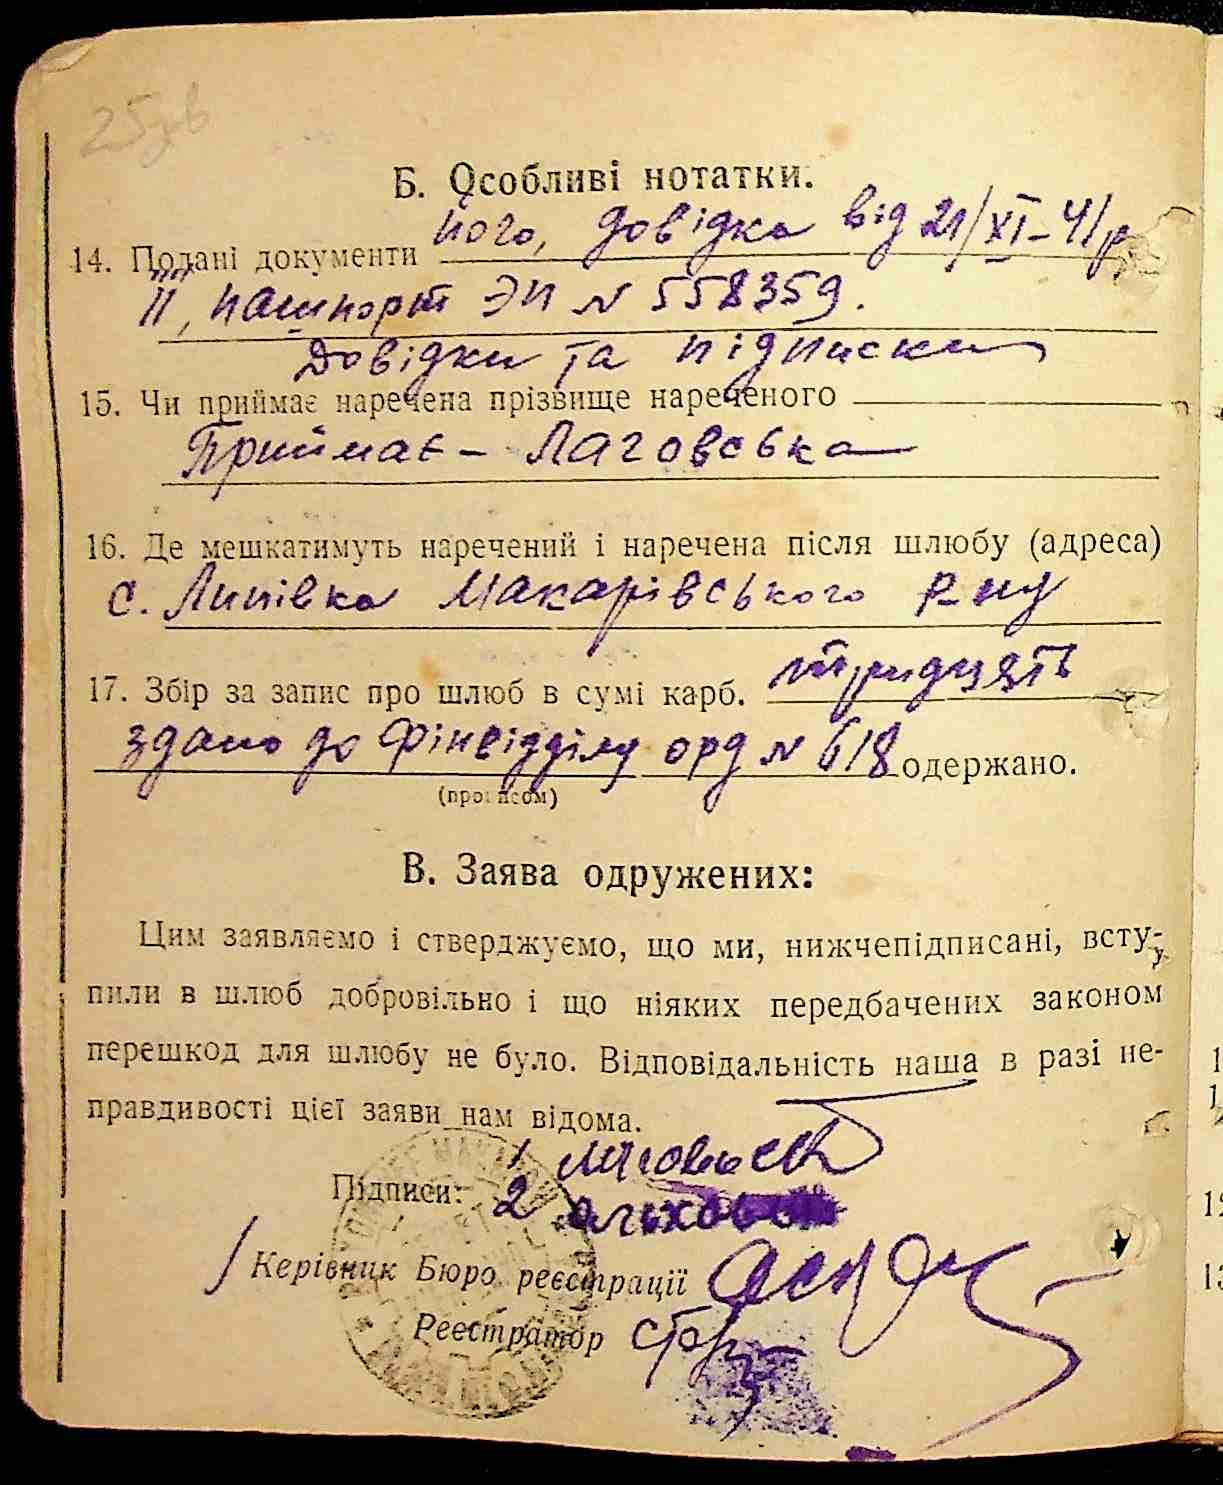 25зв
Б. Особливі нотатки.
його, довідка від 21/XI-41 р
14. Подані документи
її, пашпорт ЭП № 558359.
Довідки та підписки
15. Чи приймає наречена прізвище нареченого
Приймає - Лаговська
16. Де мешкатимуть наречений і наречена після шлюбу (адреса)
с. Липівка Макарівського р-ну
17. Збір за запис про шлюб в сумі карб. тридцять
здано до Фінвідділу орд № 618 одержано.
(прописом)
В. Заява одружених:
Цим заявляємо і стверджуємо, що ми, нижчепідписані, всту-
пили в шлюб добровільно і що ніяких передбачених законом
перешкод для шлюбу не було. Відповідальність наша в разі не-
правдивості цієї заяви нам відома.
1
Підписи: 2
Керівник Бюро реєстрації
Реєстратор